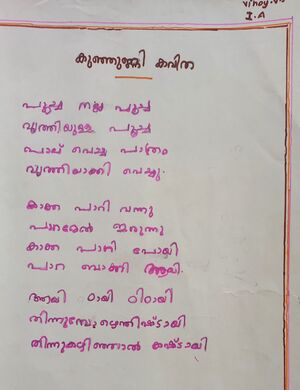 Vinay.V.S
I.A
കുഞ്ഞുണ്ണി കവിത
പൂച്ച നല്ല പൂച്ച
വൃത്തിയുള്ള പൂച്ച
പാല് വെച്ച പാത്രം
വൃത്തിയാക്കി വെച്ചു.
കാക്ക പാറി വന്നു
പാറമേൽ ഇരുന്നു
കാക്ക പാറി പോയി
പാറ ബാക്കി ആയി.
ആയി ഠായി മിഠായി
തിന്നുമ്പോഴെന്തിഷ്ടായി
തിന്നുകഴിഞ്ഞാൽ കഷ്ടായി